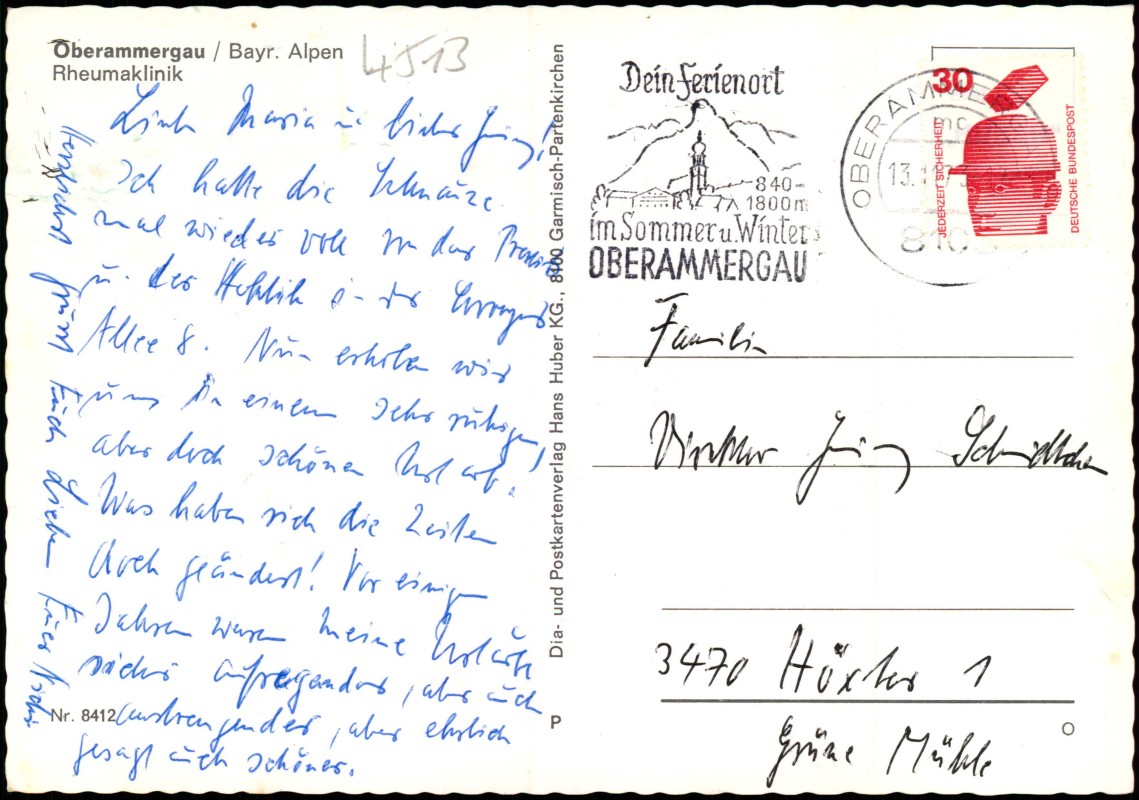 Oberammergau / Bayr. Alpen
Rheumaklinik
4513
Liebe Maria u. lieber Jürg!
Ich hatte die Schnauze
mal wieder voll von der Praxis
u. der Hektik in der
Allee 8. Nun erholen wir
uns in einem sehr ruhigen,
aber doch schönen Urlaub!
Was haben sich die Zeiten
doch geändert! Vor einigen
Jahren waren meine Urlaube
sicher aufregender, aber auch
anstrengender, aber ehrlich
gesagt auch schöner.
Herzlichst grüßt Euch Lieben Euer
Nr. 8412
Dia- und Postkartenverlag Hans Huber KG., 8100 Garmisch-Partenkirchen
P
Dein Ferienort
840-
1800m
im Sommer u. Winter
OBERAMMERGAU
OBERAMMER
13.11
810
30
JEDERZEIT SICHERHEIT
DEUTSCHE BUNDESPOST
Familie
Direktor Jürg
3470 Höxter 1
Grüne Mühle